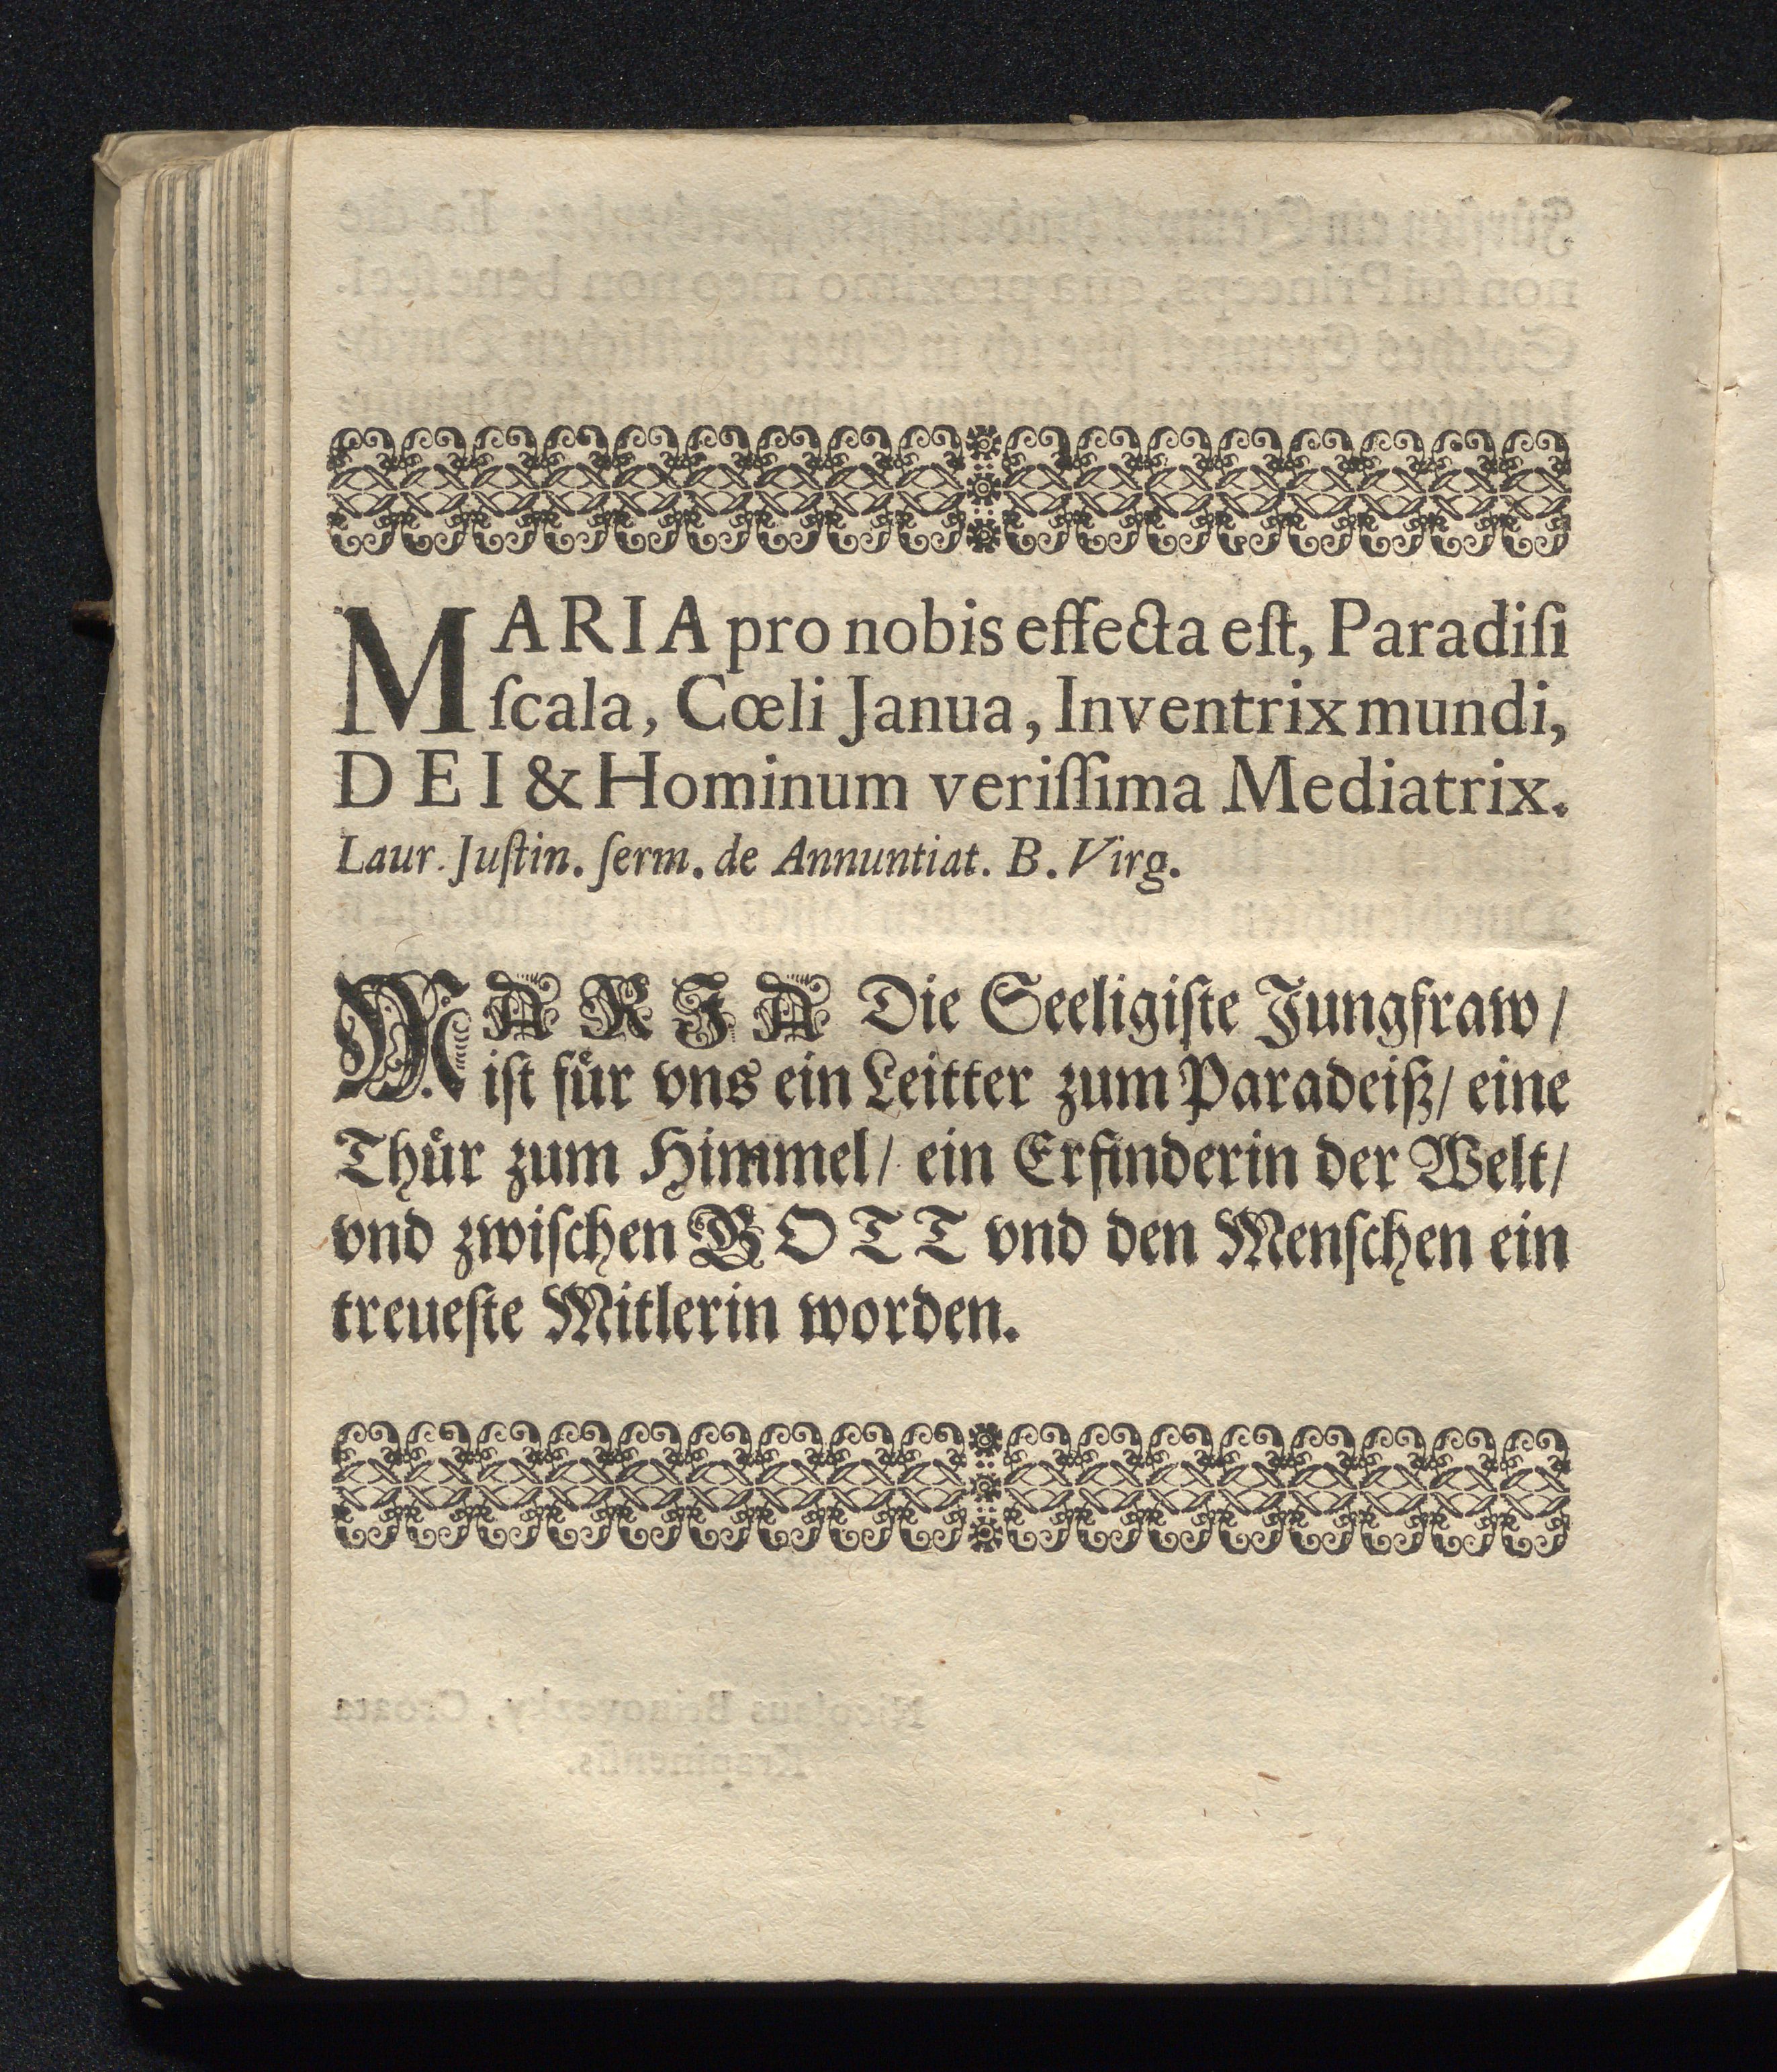 MARIA pro nobis effecta eſt, Paradiſi
ſcala, Cœli Janua, Inventrix mundi,
DEI & Hominum veriſſima Mediatrix.
Laur. Juſtin. ſerm. de Annuntiat. B. Virg.
MARIA Die Seeligiſte Jungfraw /
iſt fuͤr vns ein Leitter zum Paradeiß / eine
Thuͤr zum Himmel / ein Erfinderin der Welt /
vnd zwiſchen GOTT vnd den Menſchen ein
treueſte Mitlerin worden.